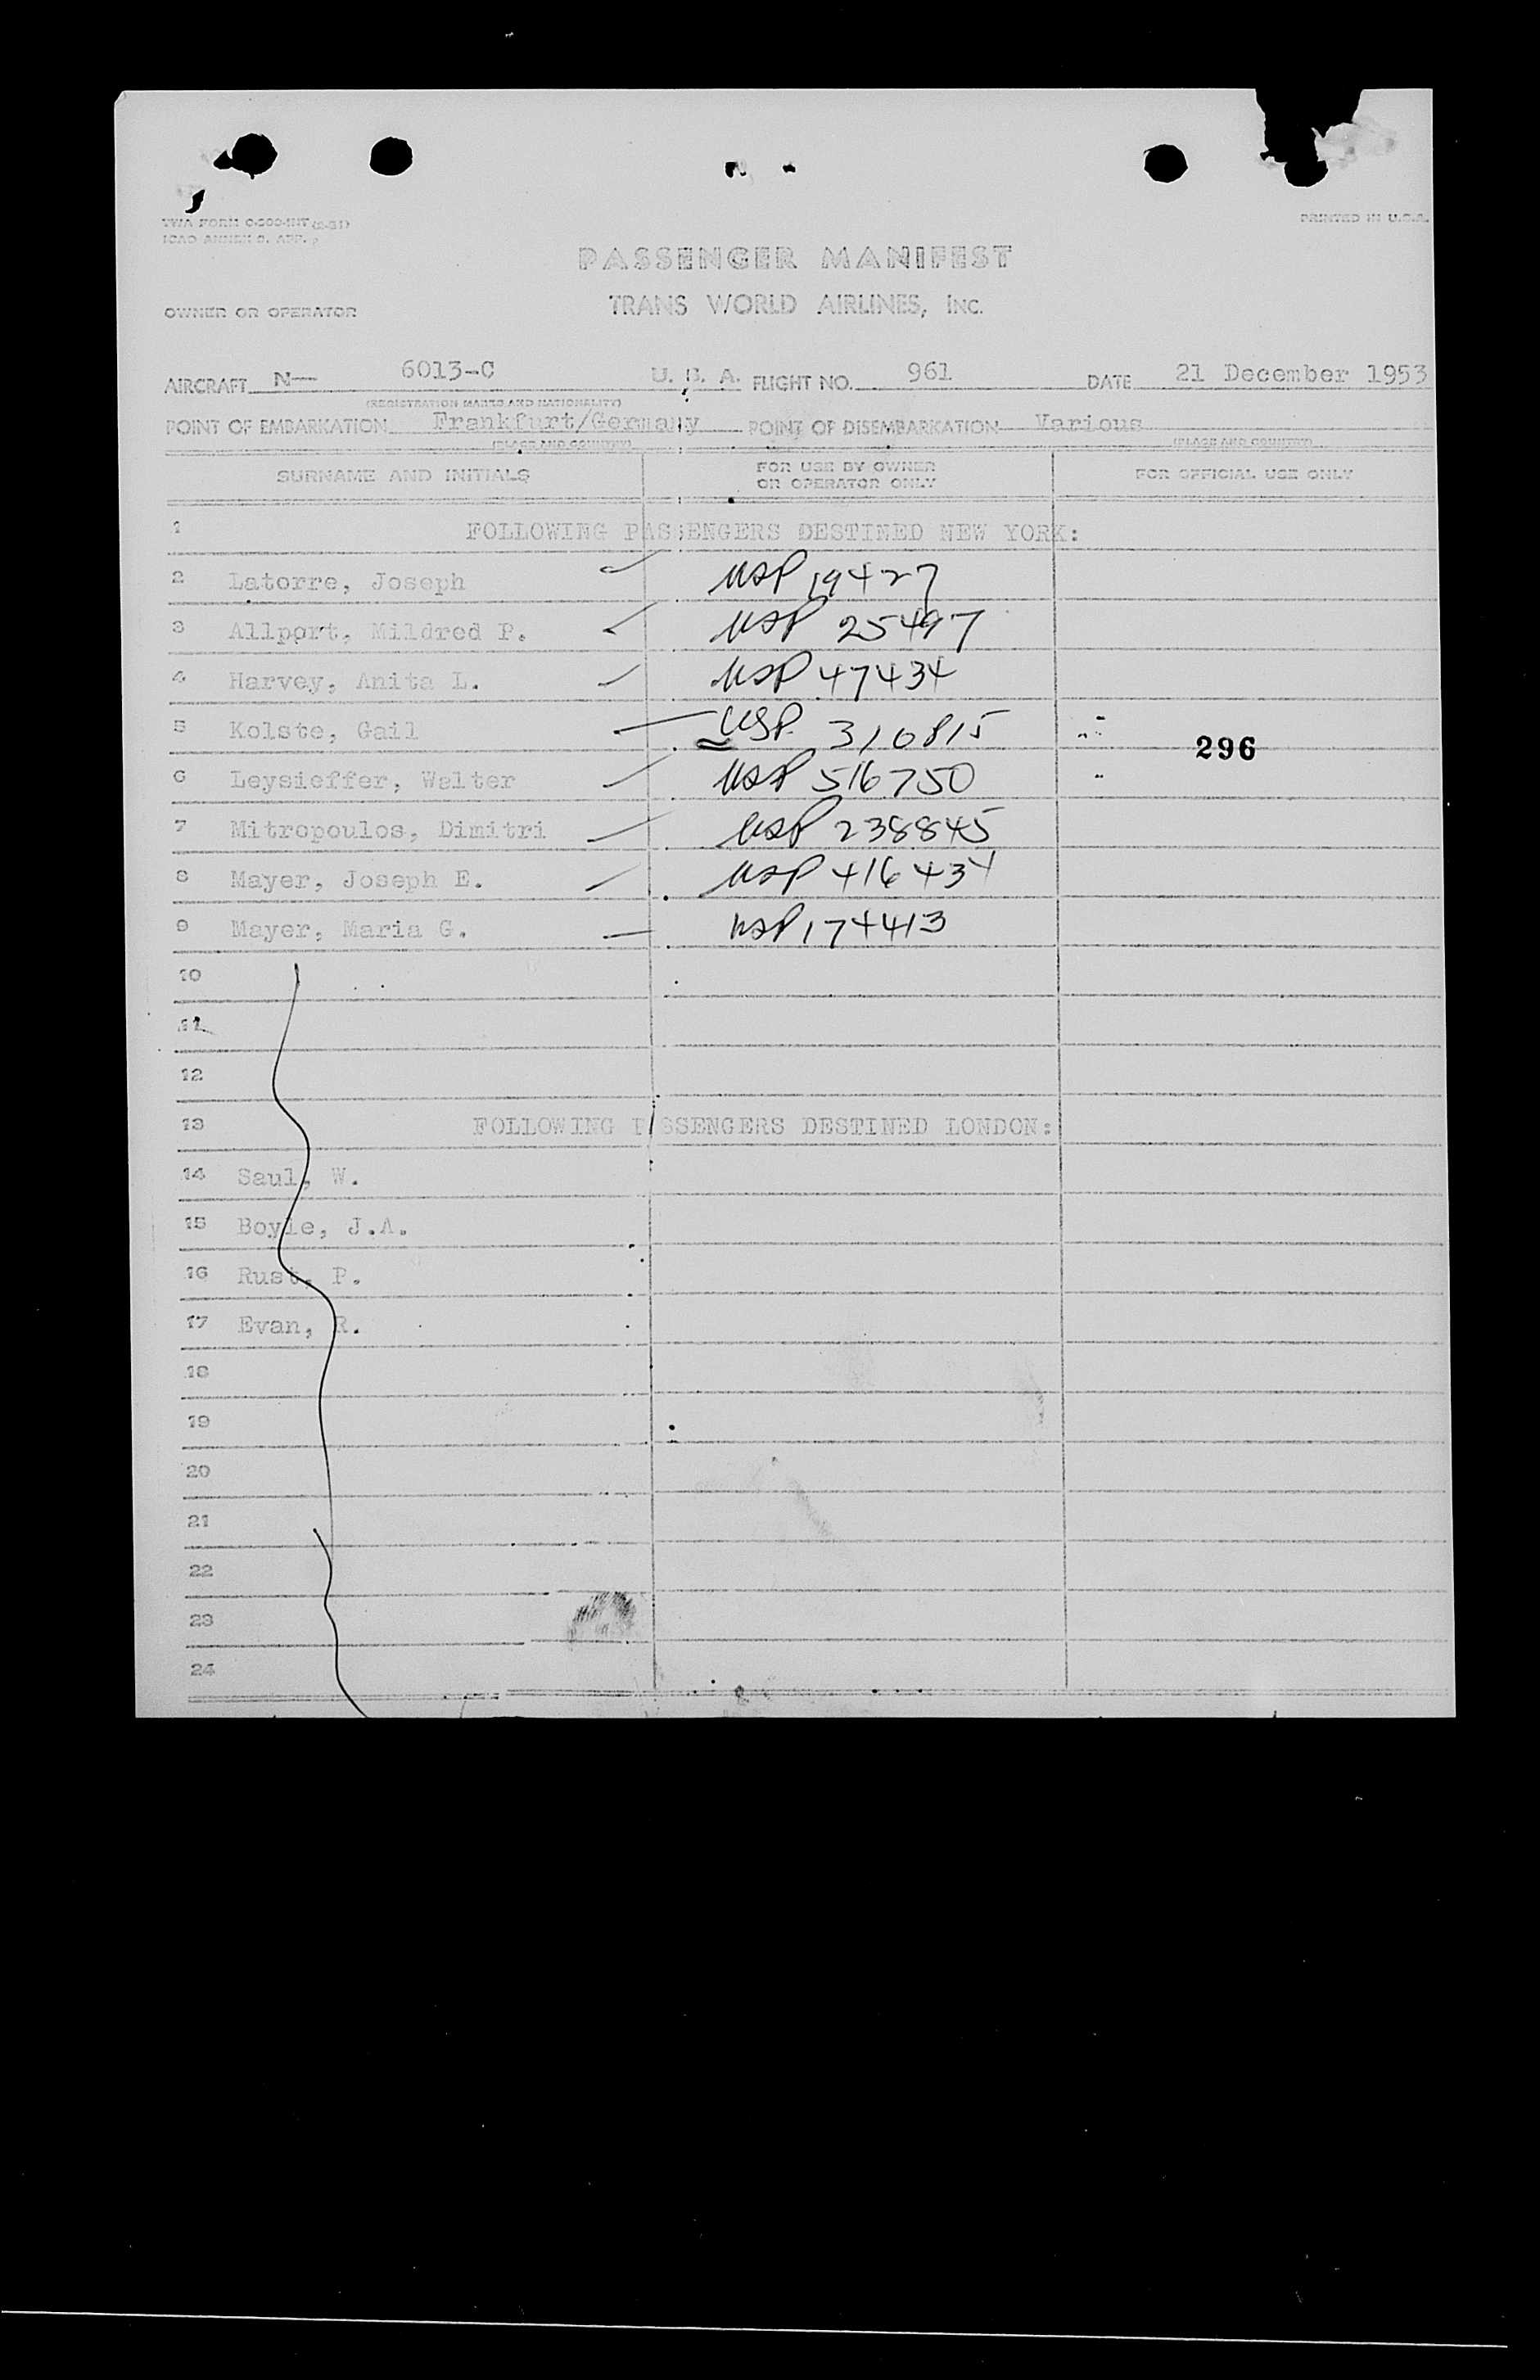 TWA FORM O-200-INT (5-51)
ICAO ANNEX 9. APP.
PRINTED IN U.S.A.
PASSENGER MANIFEST
OWNER OR OPERATOR TRANS WORLD AIRLINES, INC.
AIRCRAFT N— 6013-C U. S. A. FLIGHT NO. 961 DATE 21 December 1953
(REGISTRATION MARKS AND NATIONALITY)
POINT OF EMBARKATION Frankfurt/Germany POINT OF DISEMBARKATION Various
(PLACE AND COUNTRY) (PLACE AND COUNTRY)
SURNAME AND INITIALS FOR USE BY OWNER OR OPERATOR ONLY FOR OFFICIAL USE ONLY
1 FOLLOWING PASSENGERS DESTINED NEW YORK:
2 Latorre, Joseph USP 19427
3 Allport, Mildred P. USP 25497
4 Harvey, Anita L. USP 47434
5 Kolste, Gail USP 310815
296
6 Leysieffer, Walter USP 516750
7 Mitropoulos, Dimitri USP 238845
8 Mayer, Joseph E. USP 416434
9 Mayer, Maria G. USP 174413
10
11
12
13 FOLLOWING PASSENGERS DESTINED LONDON:
14 Saul, W.
15 Boyle, J.A.
16 Rust, P.
17 Evan, R.
18
19
20
21
22
23
24